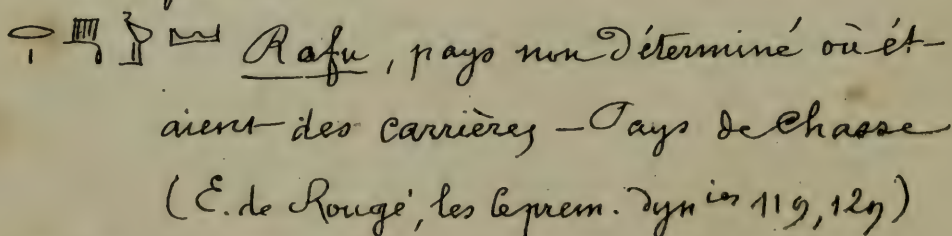 Rafu, pays non déterminé où ét-
aient des carrières - Pays de chasse
(E. de Rougé, les 6 prem. dynies 119, 129)